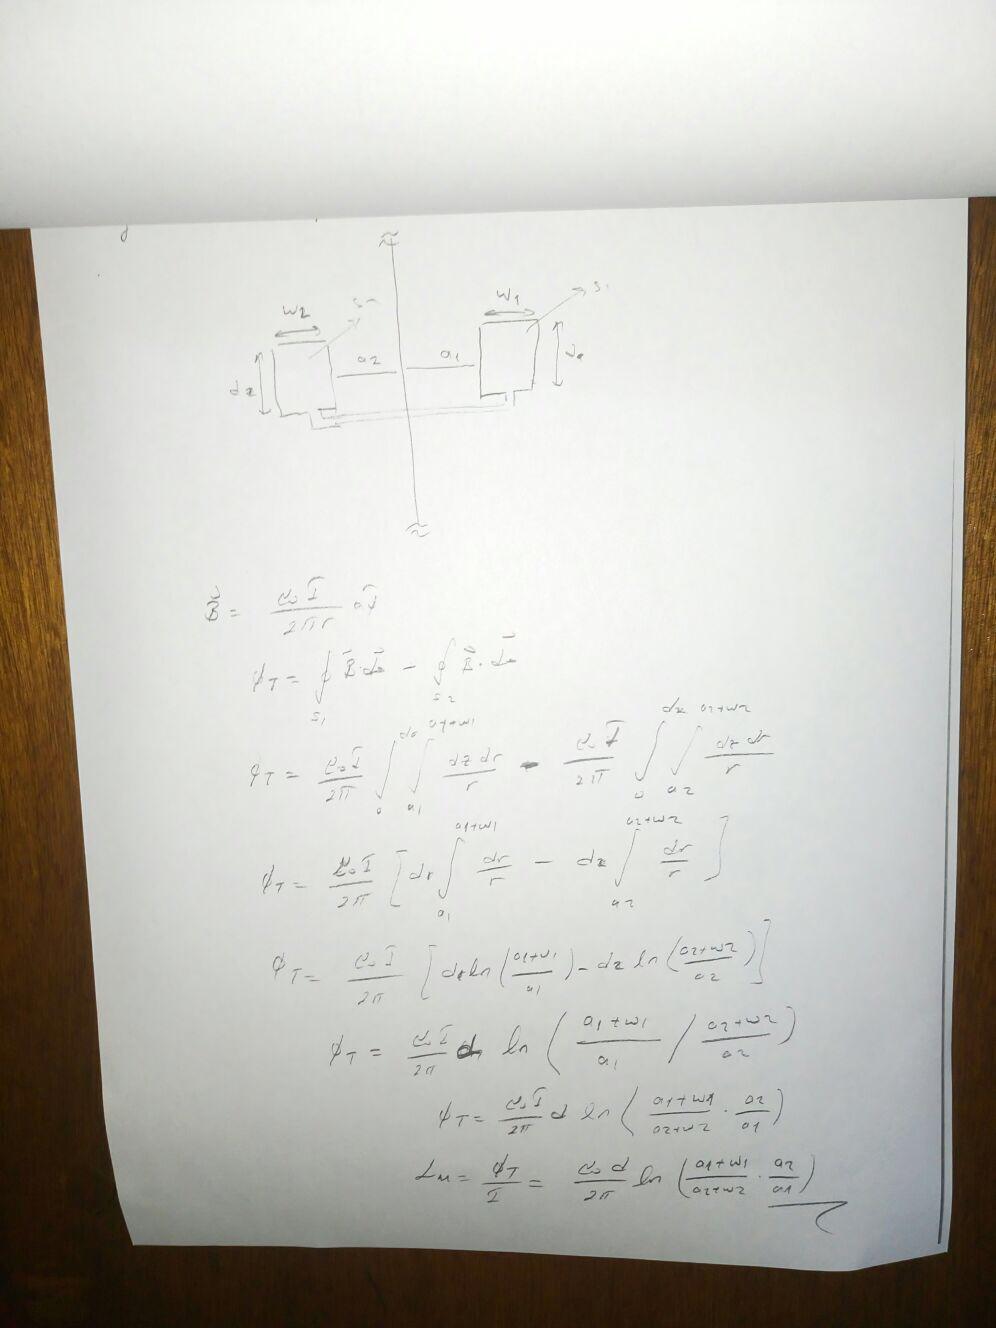 w2 w1 S1
a2 a1
d2
B⃗ = μ₀I / 2πr
ψT = ∮S1 B⃗·ds⃗ − ∮S2 B⃗·ds⃗
ψT = μ₀I/2π ∫₀^d1 ∫a1^(a1+w1) dz dr / r − μ₀I/2π ∫₀^d2 ∫a2^(a2+w2) dz dr / r
ψT = μ₀I/2π [ d1 ∫a1^(a1+w1) dr/r − d2 ∫a2^(a2+w2) dr/r ]
ψT = μ₀I/2π [ d1 ln ( (a1+w1)/a1 ) − d2 ln ( (a2+w2)/a2 ) ]
ψT = μ₀I/2π d ln ( (a1+w1)/a1 / (a2+w2)/a2 )
ψT = μ₀I/2π d ln ( (a1+w1)/(a2+w2) · a2/a1 )
LM = ψT/I = μ₀d/2π ln ( (a1+w1)/(a2+w2) · a2/a1 )